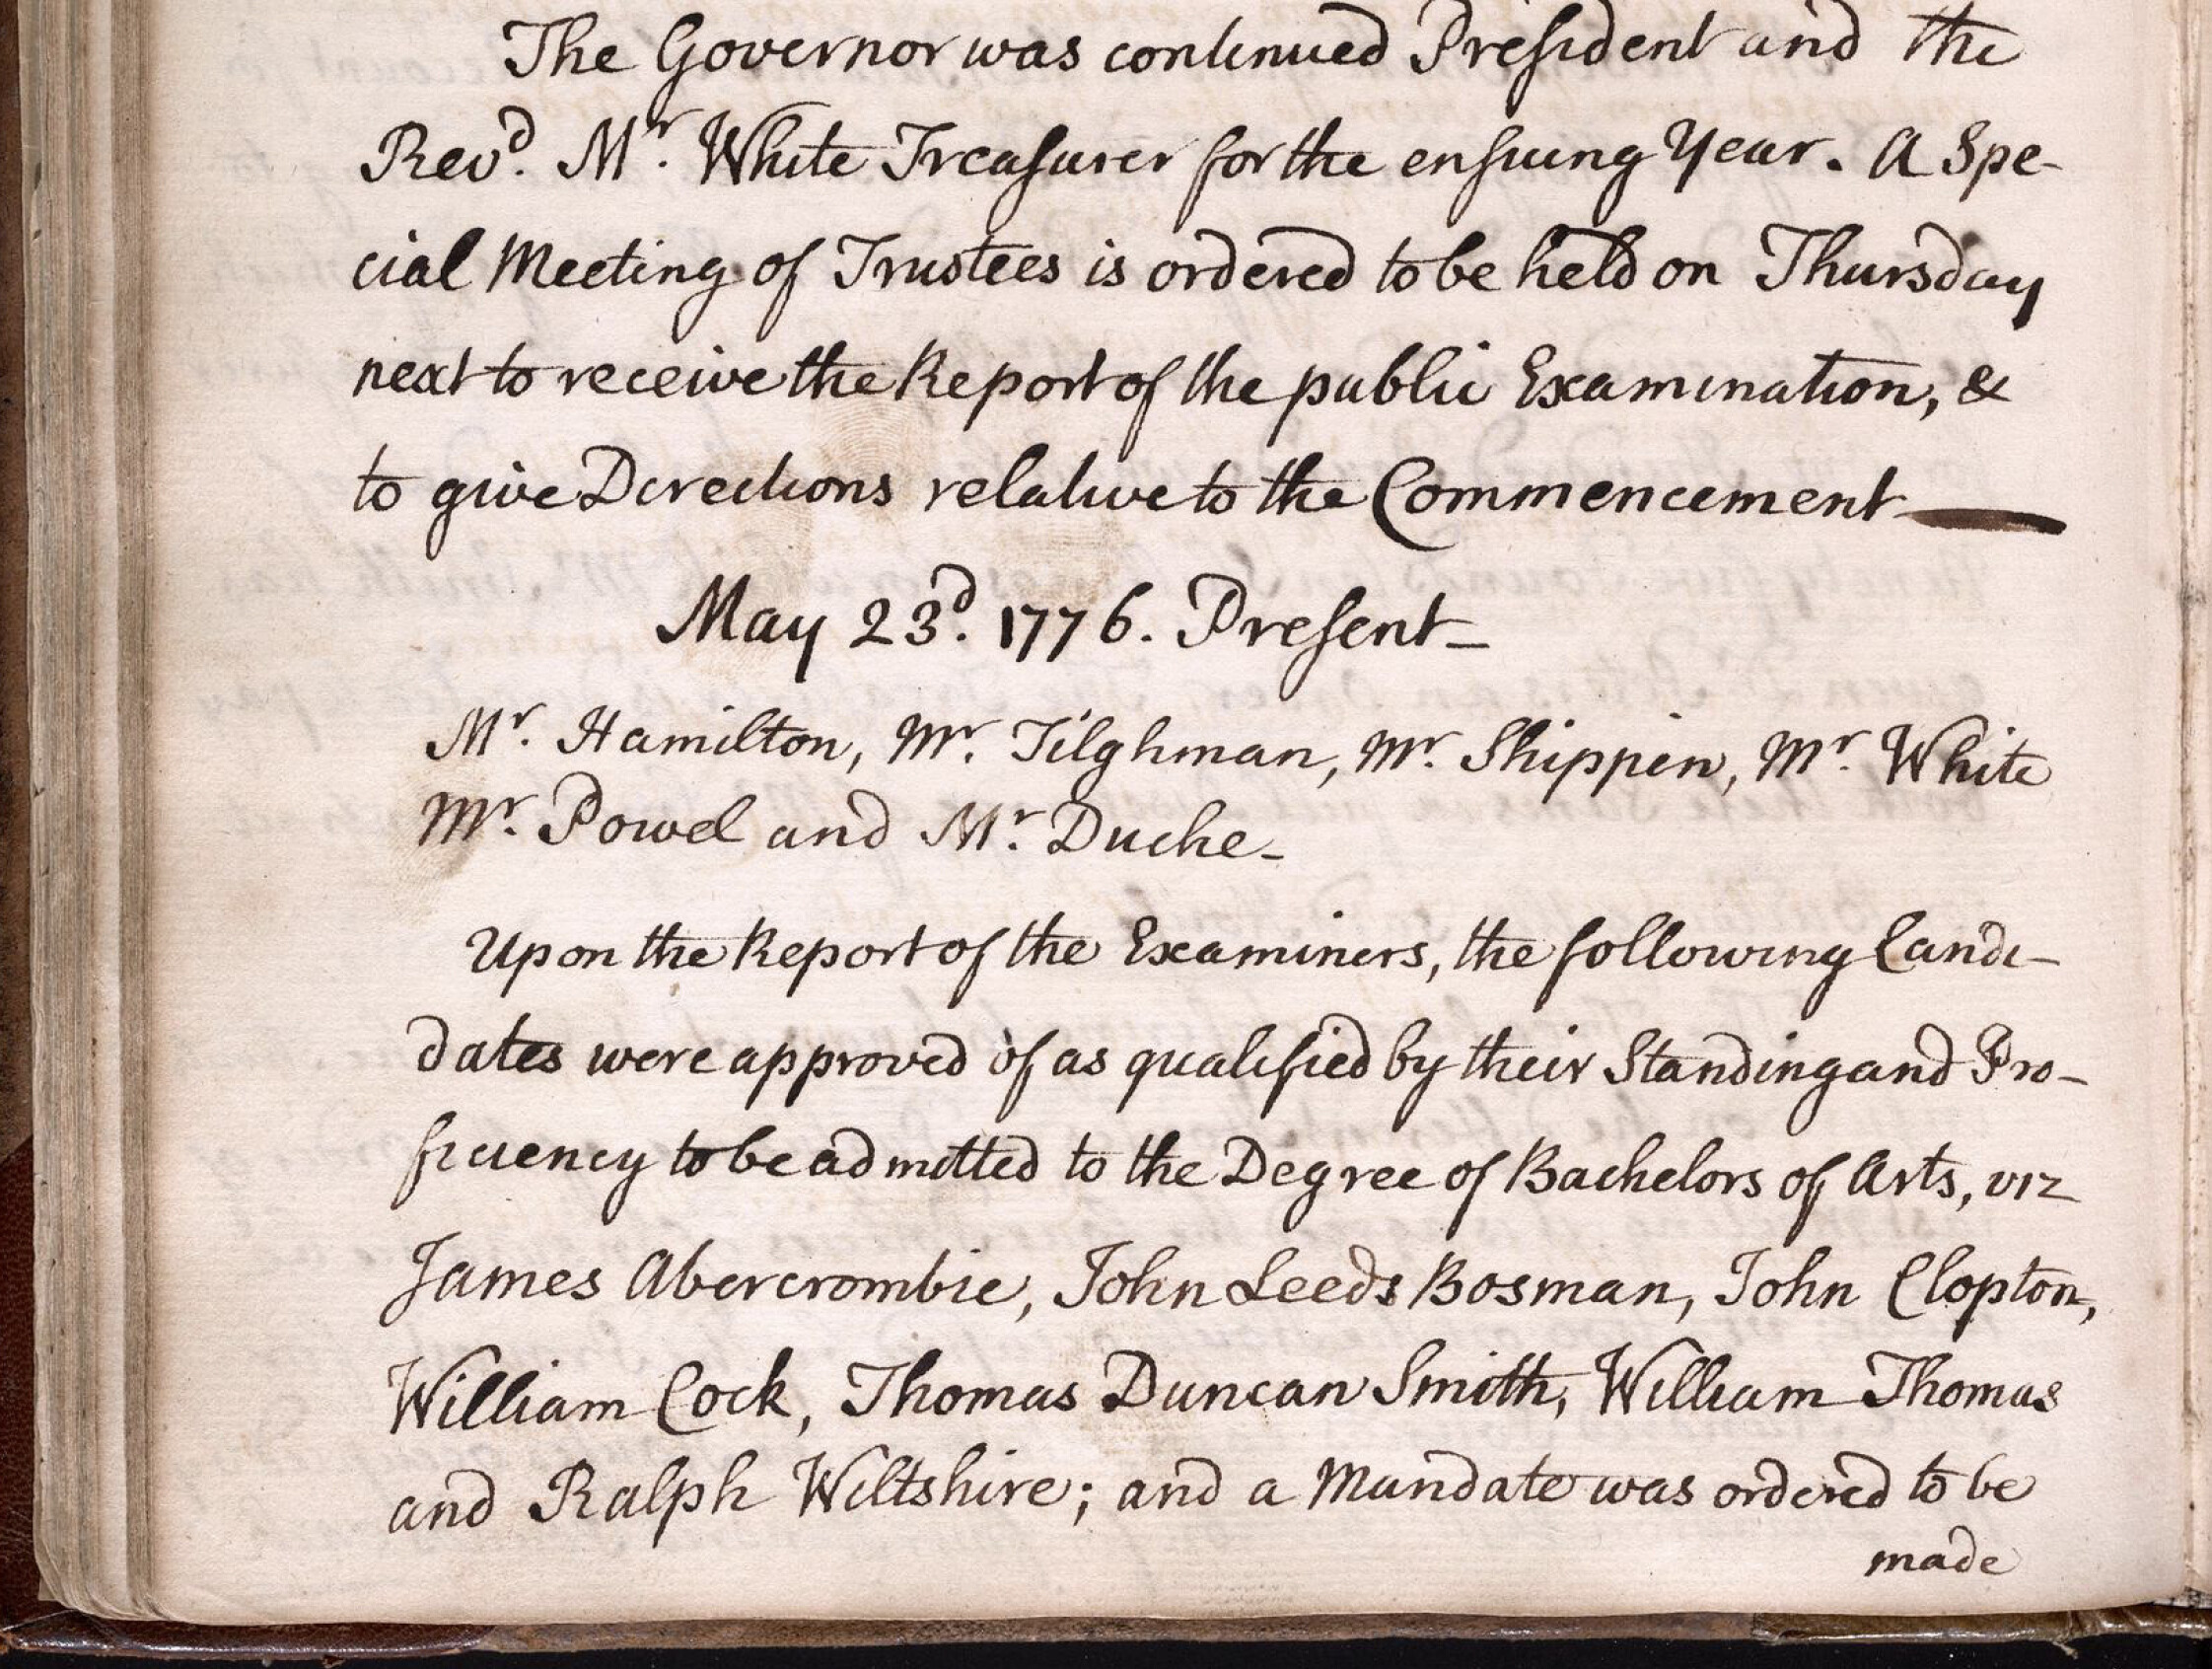 The Governor was continued President and the
Revd. Mr. White Treasurer for the ensuing Year. A Spe-
cial Meeting of Trustees is ordered to be held on Thursday
next to receive the Report of the public Examination, &
to give Directions relative to the Commencement —
May 23d. 1776. Present -
Mr. Hamilton, Mr. Tilghman, Mr. Shippen, Mr. White
Mr. Powel and Mr. Duche -
Upon the Report of the Examiners, the following Candi-
dates were approved of as qualified by their Standing and Pro-
ficiency to be admitted to the Degree of Bachelors of Arts, viz
James Abercrombie, John Leeds Bosman, John Clopton,
William Cock, Thomas Duncan Smith, William Thomas
and Ralph Wiltshire; and a Mandate was ordered to be
made